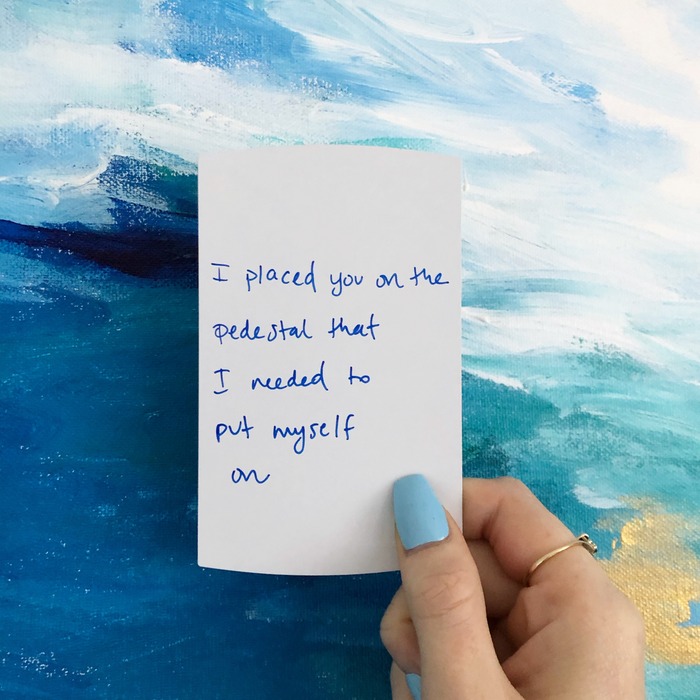 I placed you on the
pedestal that
I needed to
put myself
on